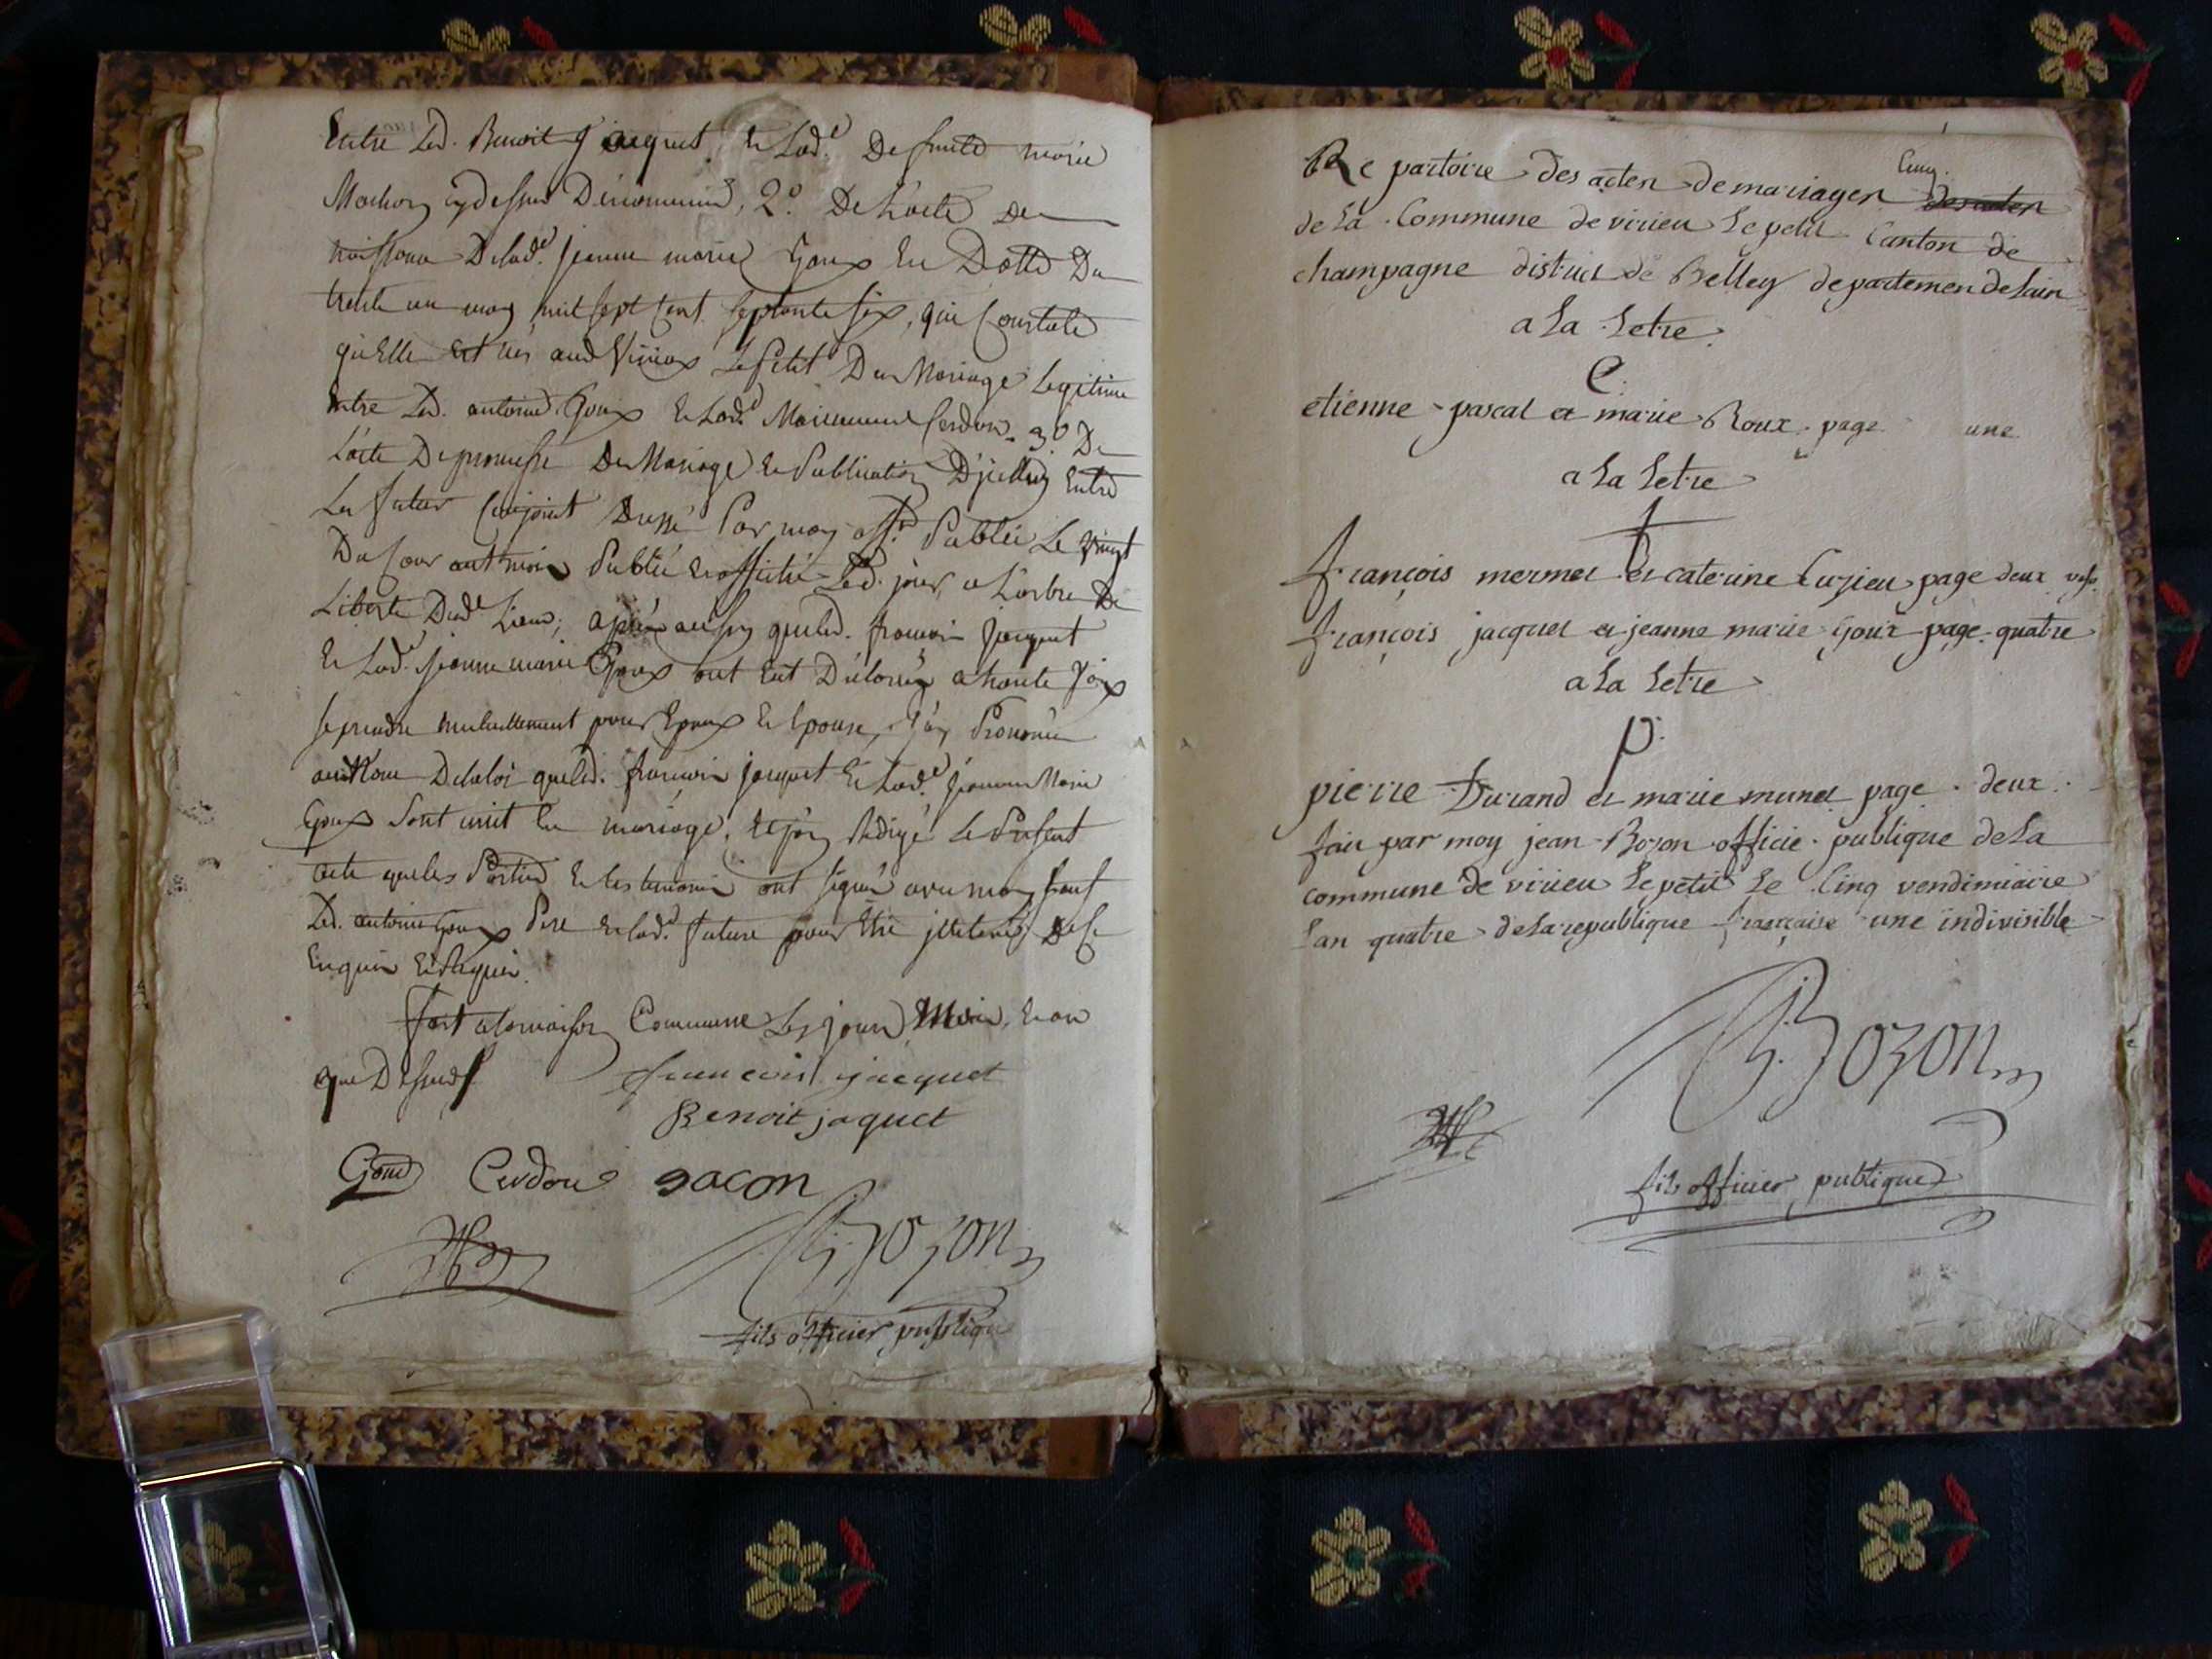 Entre Led. Benoit Jacquet et Lad.e Defunte marie
Machon cydessus Dénommé, 2.o De L'acte De
naissance Delad.e jeanne marie Goux En Datte Du
trente un may mil sept cent septante six, qui Constate
qu'Elle Est née aud Virieux Le Petit Du Mariage Legitime
entre Led. antoine Goux et Lad.e Cerdon. 3.o De
L'acte De promesse De Mariage et Publication D'jcelluy Entre
Les futur Conjoint Dressé Par moy off.r Public Le vingt
Du Courant mois Publié et affiché Led. jour, a L'arbre De
Liberté Dud.t Lieux; après aussy queled. françois jacquet
et Lad.e jeanne marie Goux ont Eut Déclarés a haute Voix
se prendre mutuellement pour Epoux et Epouse, j'ay Prononcé
au Nom Delaloi queled. françois jacquet et Lad.e jeanne Marie
Goux Sont unit En mariage. et j'ay Rédigé Le Présent
acte queles Parties et les temoins ont signés avec moy sauf
Led. antoine Goux Pere et lad.e future pour Etre jlliterés De ce
Enquis et Requis.
fait alamaison Commune Les jours, Mois, et an
que Dessus
francois jacquet
Benoit jaquet
Goux Cerdon Jacon
J. Bozon
fils officier publique
Repartoire des actes de mariages Cinq.
de La Commune de virieu Le petit Canton de
champagne district de Belley departemen de Lain
a La Letre
E.
etienne pascal et marie Roux page une
a La Letre
f
françois mermet et caterine Cuzieu page deux vso.
françois jacquet et jeanne marie Goux page quatre
a La Letre
p.
pierre Durand et marie munet page deux
fait par moy jean Bozon officie publique de La
commune de virieu Le petit Le Cinq vendimiaire
Lan quatre de La republique française une indivisible
J. Bozon
fils officier publique